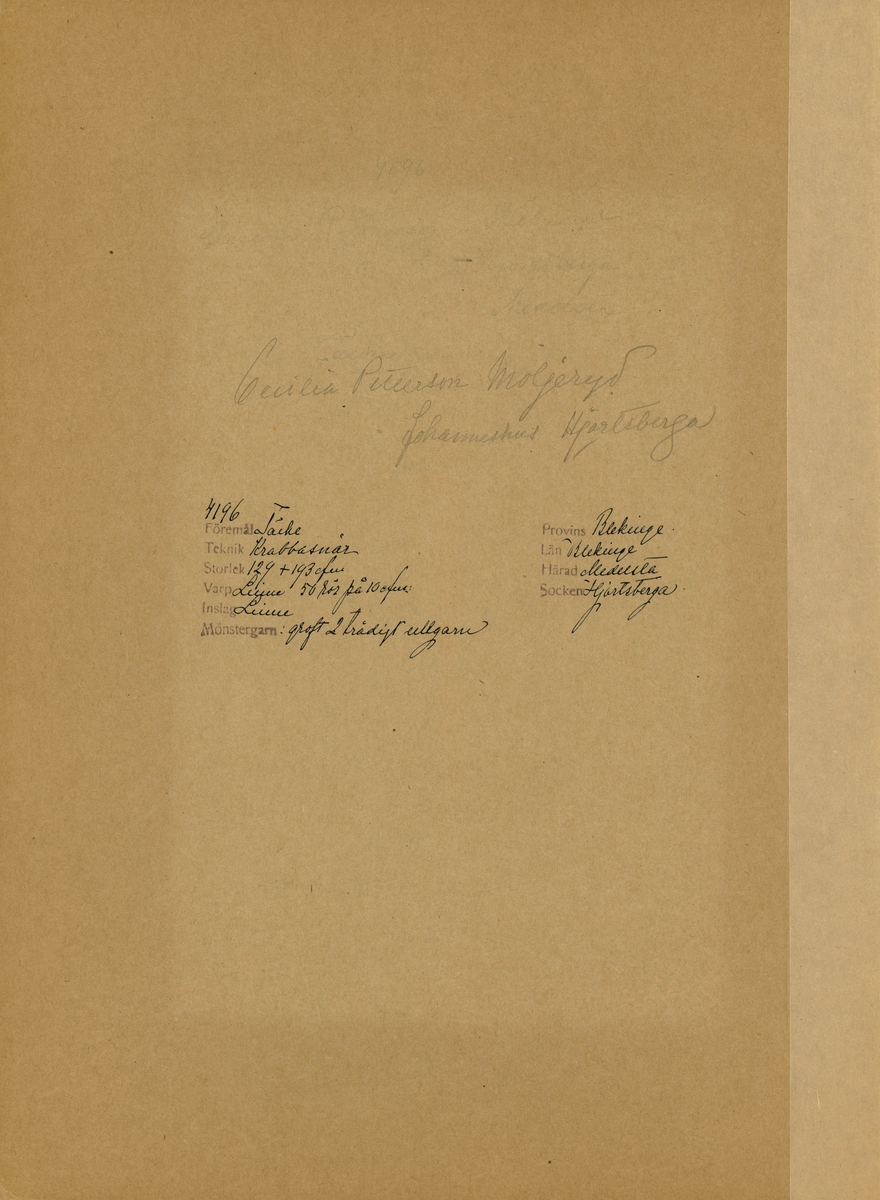 4196
Cecilia Peterson Möljeryd
Johannishus Hjortsberga
4196
Föremål Täcke
Teknik Krabbasnår
Storlek 129 + 193 c/m
Varp Linne 56 rör på 10 c/m:
Inslag Linne
Mönstergarn: groft 2 trådigt ullgarn
Provins Blekinge.
Län Blekinge
Härad Medelsta
Socken Hjortsberga.